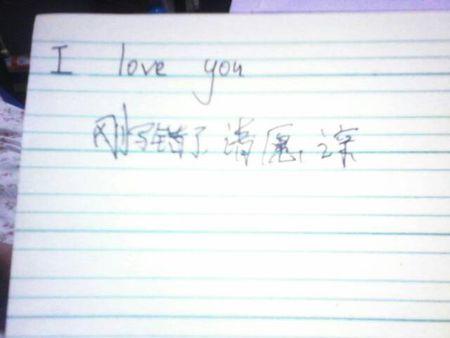 I love you
刚写错了 请愿谅